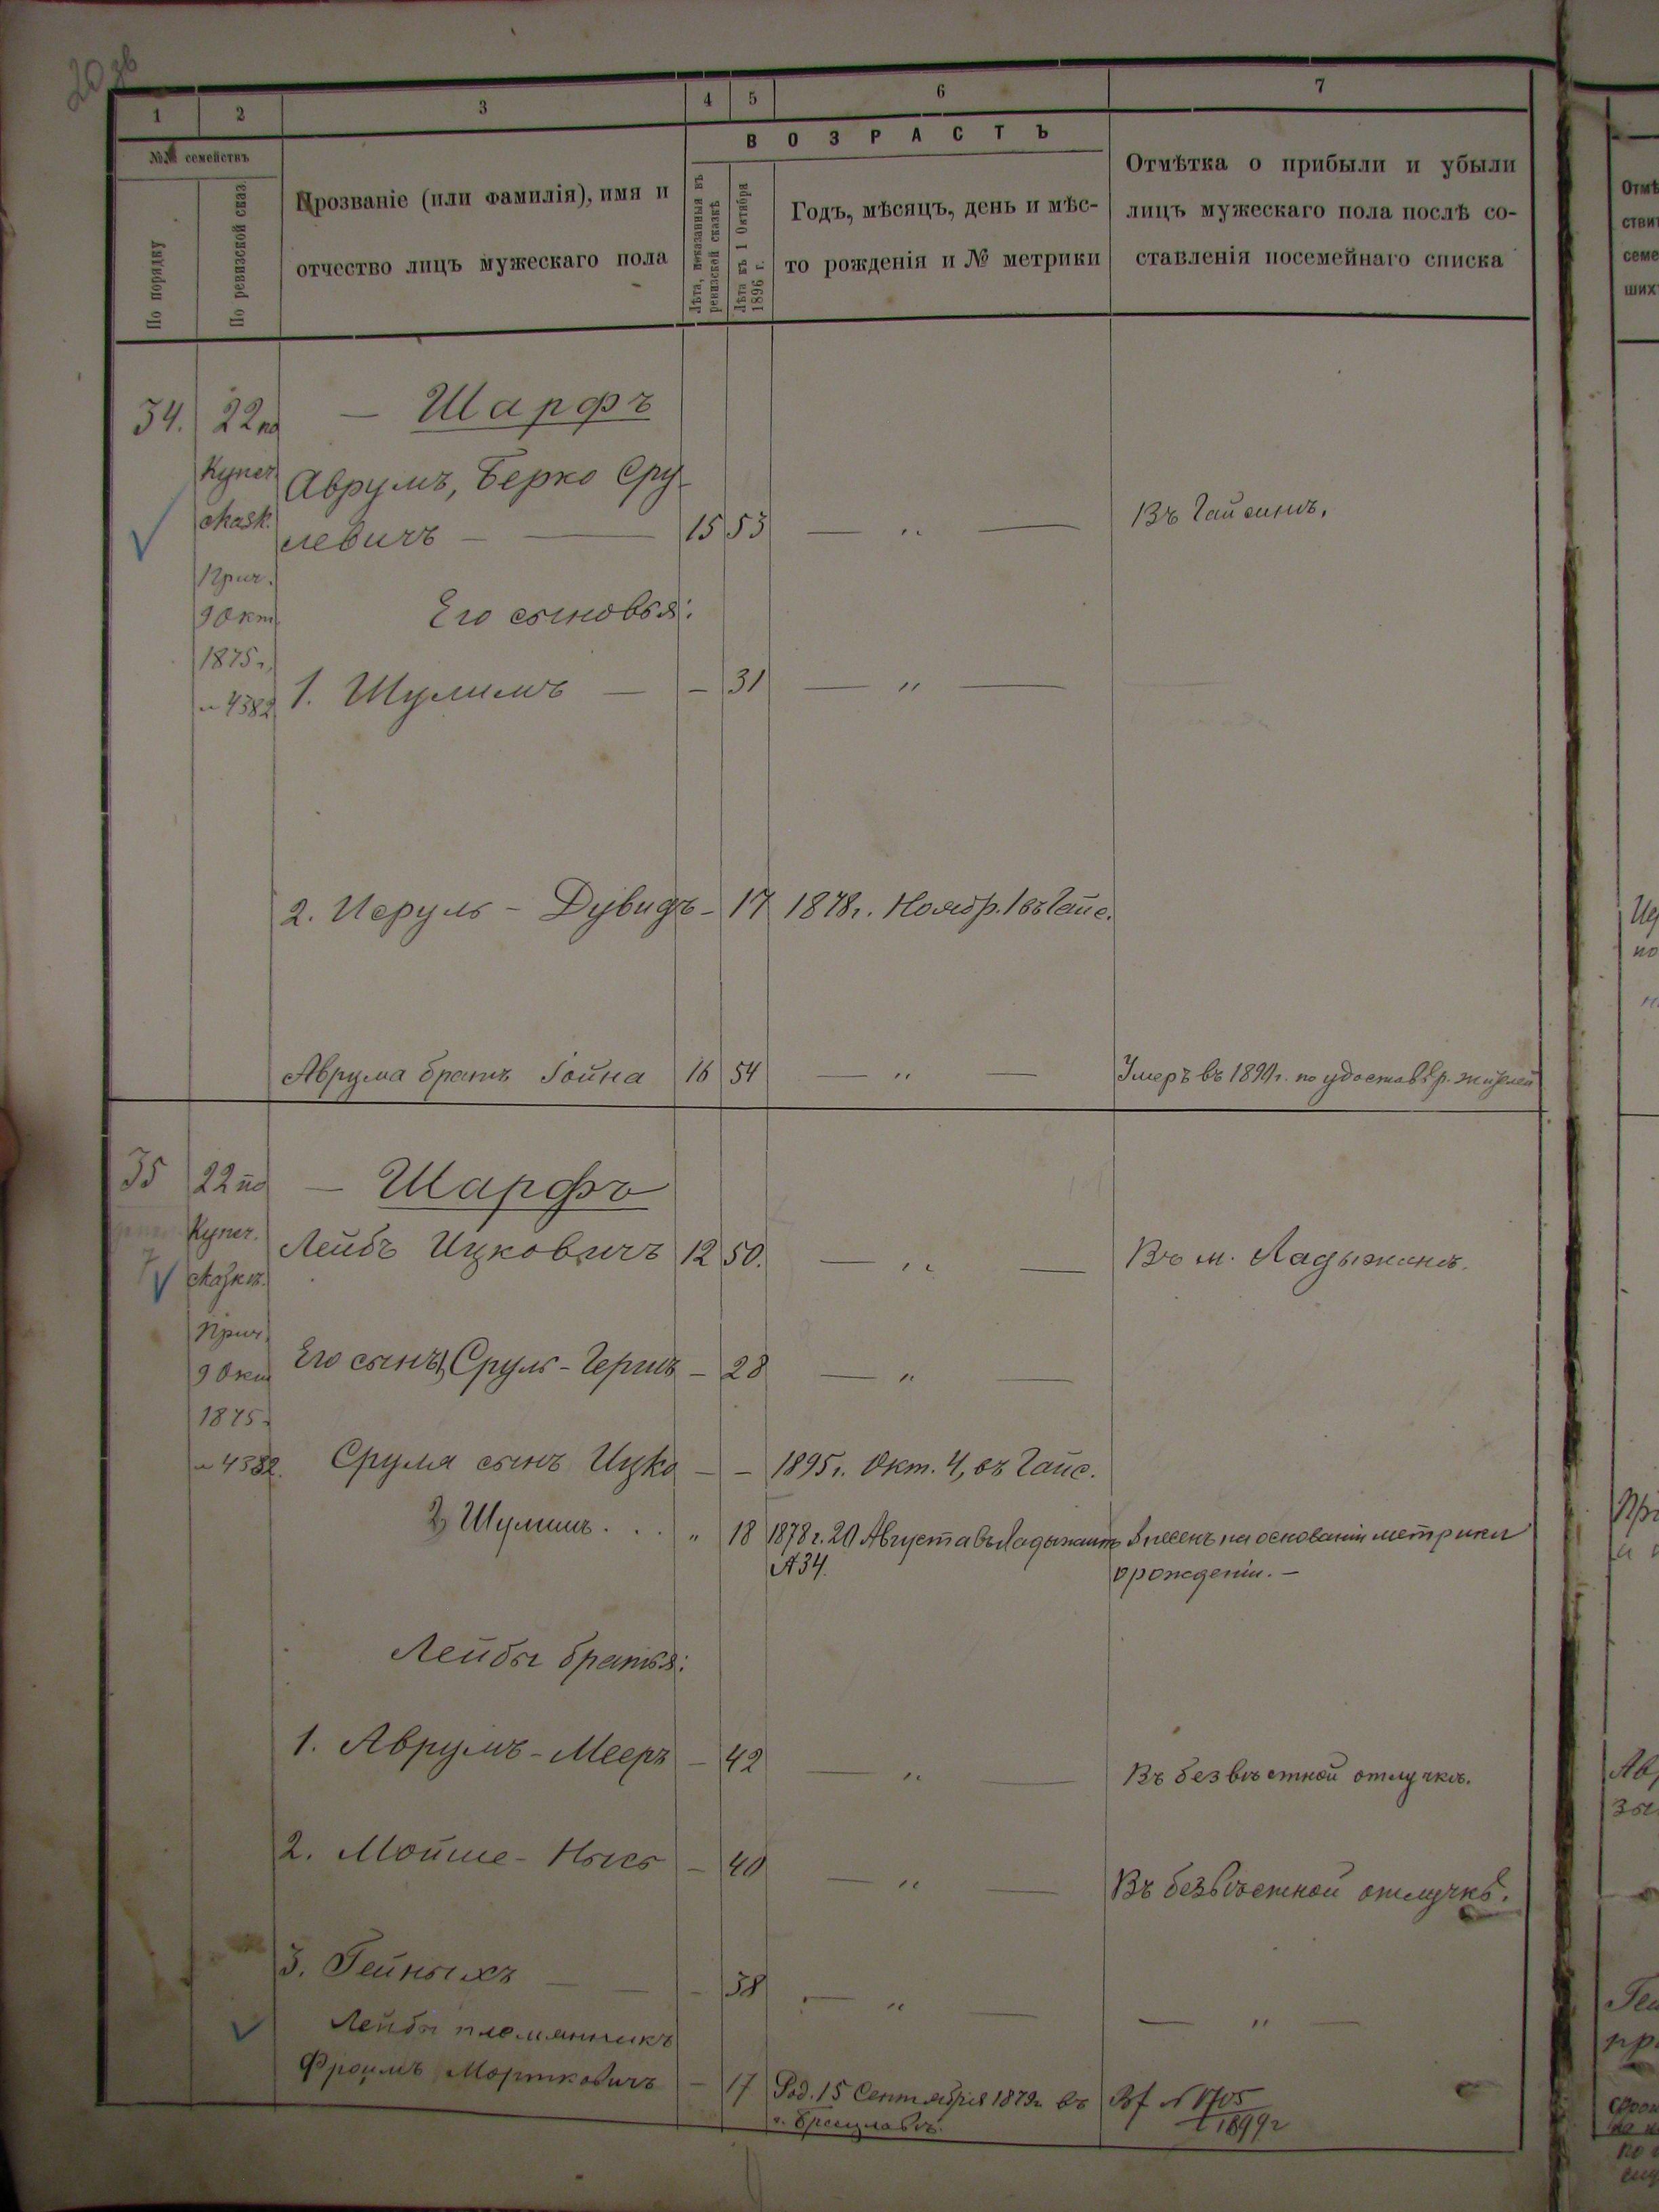 20 зв
1 2 3 4 5 6 7
№№ семействъ
По порядку
По ревизской сказ.
Прозваніе (или фамилія), имя и
отчество лицъ мужескаго пола
ВОЗРАСТЪ
Лѣта, показанныя въ
ревизской сказкѣ
Лѣта къ 1 Октября
1896 г.
Годъ, мѣсяцъ, день и мѣс-
то рожденія и № метрики
Отмѣтка о прибыли и убыли
лицъ мужескаго пола послѣ со-
ставленія посемейнаго списка
34. 22 по — Шарфъ
Купеч.
Аврумъ, Берко Сру-
сказк.
левичъ — — 15 53 — „ — Въ Гайсинѣ.
Прич.
9 Окт. Его сыновья:
1875 г.
№ 4382 1. Шулимъ — — 31 — „ —
2. Исруль - Дувидъ - 17 1878 г. Ноябр. 1 въ Гайс.
Аврума братъ Іойна 16 54 — „ — Умеръ въ г. по удостовѣр. жителей
35 22 по — Шарфъ
Купеч.
Лейбъ Ицковичъ 12 50. — „ — Въ м. Ладыжинѣ.
сказкѣ.
Прич.
9 Окт Его сынъ 1, Сруль - Гершъ - 28 — „ —
1875 г.
№ 4382. Сруля сынъ Ицко — — 1895 г. Окт. 4, въ Гайс.
2, Шулимъ . . . „ 18 1878 г. 20 Августа въ Ладыжинѣ Внесенъ на основаніи метрики
№ 34. о рожденіи. —
Лейбы братья:
1. Аврумъ - Мееръ - 42 — „ — Въ безвѣстной отлучкѣ.
2. Мойше - - 40 — „ — Въ безвѣстной отлучкѣ.
3. Гейныхъ — — - 38 — „ — — „ —
Лейбы племянникъ
Фроимъ Мортковичъ - 17 Род. 15 Сентября 1879 г. въ № 1705
г. Брацлавѣ. 1899 г